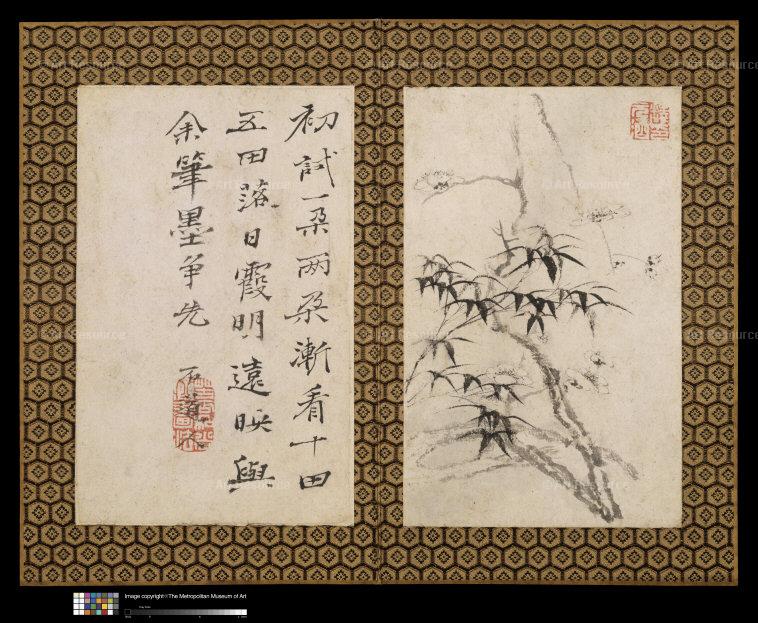 初試一朶两朶漸看十田
五田落日霞明遠映與
余筆墨争先
石道人
© Art Resource
Image copyright©The Metropolitan Museum of Art